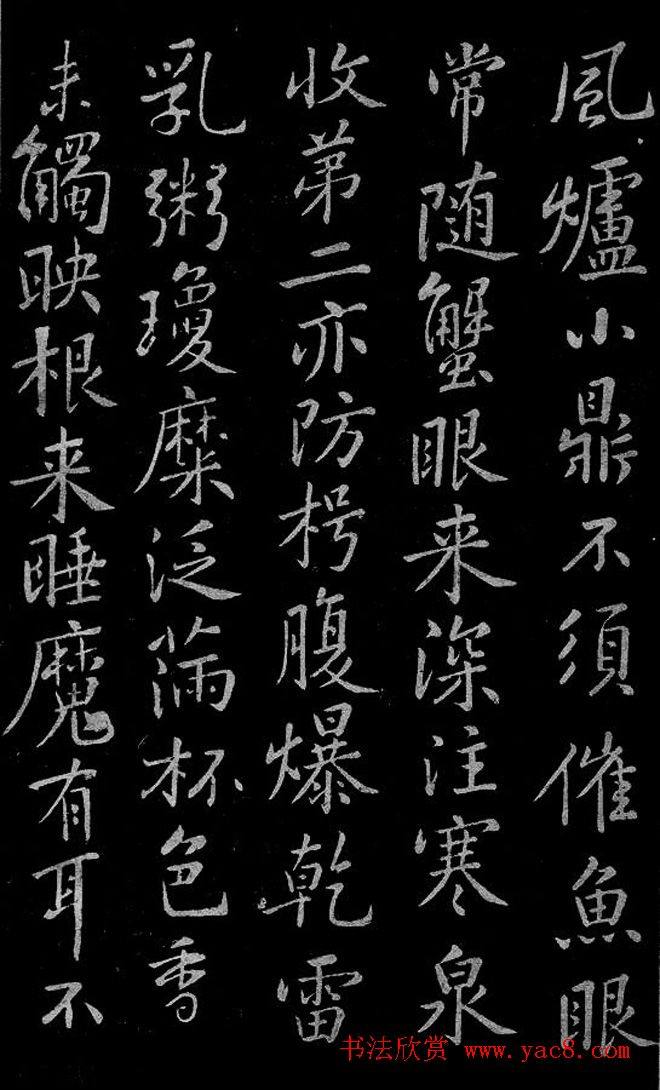 風爐小鼎不須催魚眼
常随蟹眼来深注寒泉
收苐二亦防枵腹爆乾雷
乳粥瓊糜泛满杯色香
未觸映根来睡魔有耳不
书法欣赏 www.yac8.com